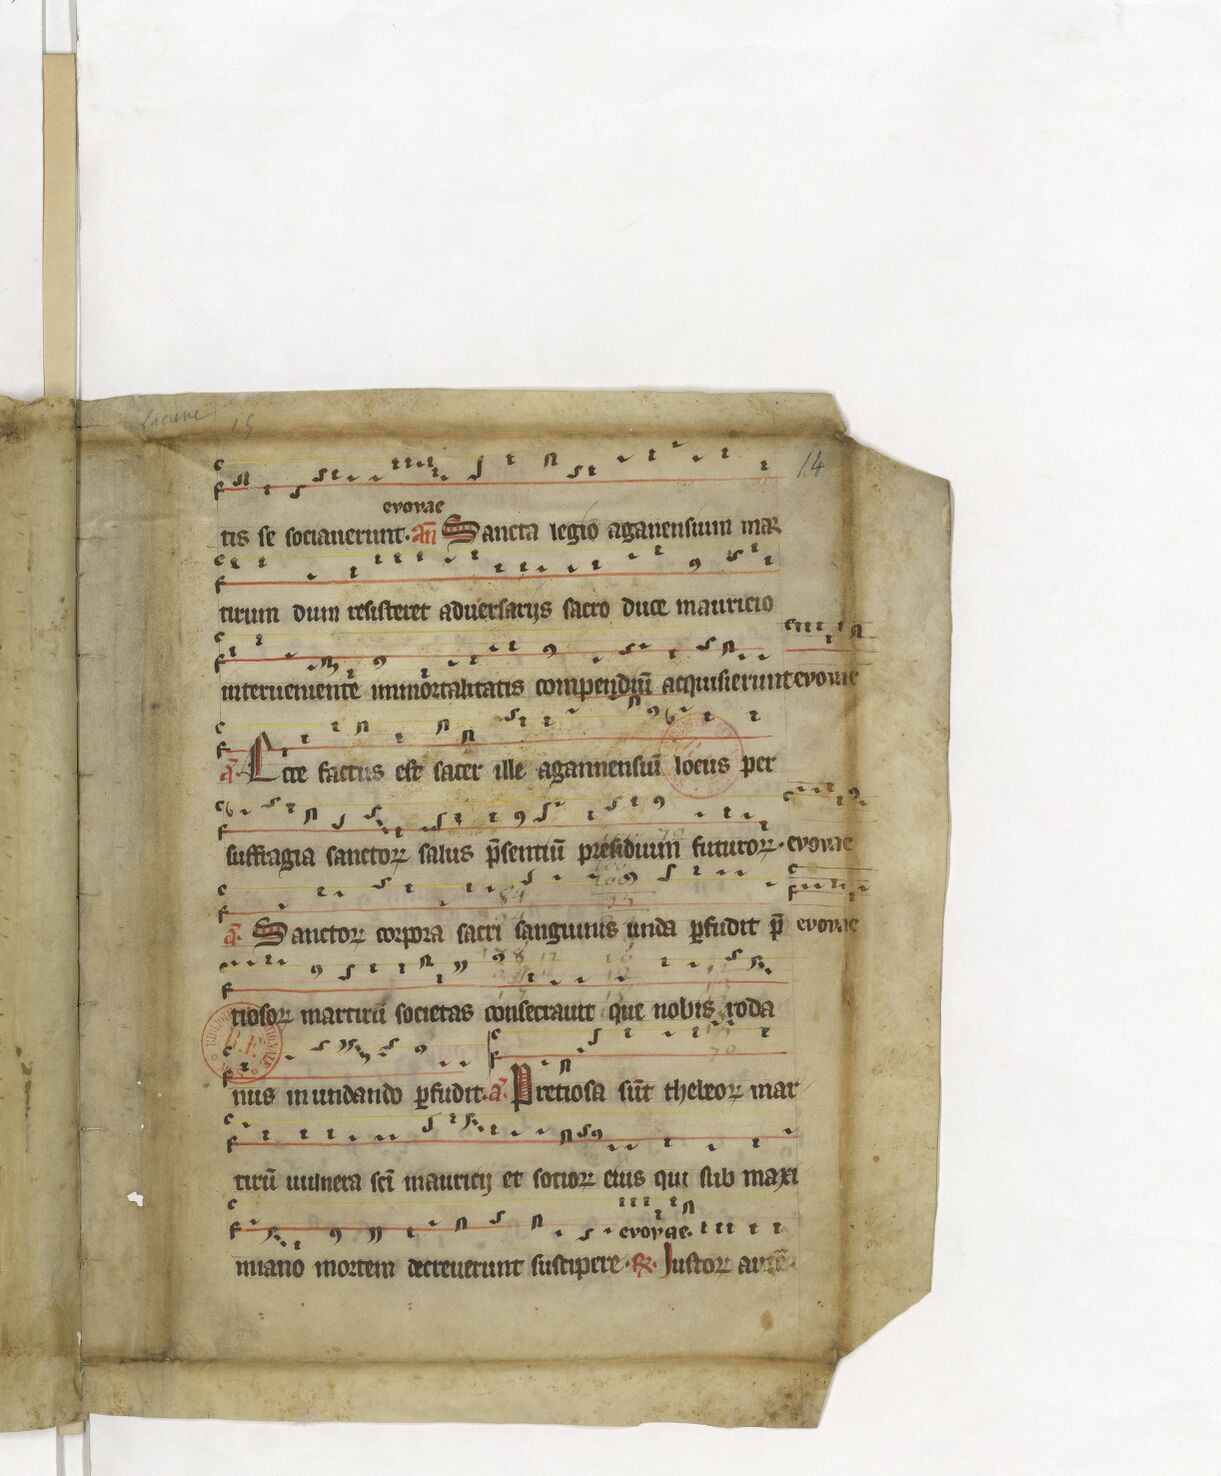 Lacune 15
14
evovae
tis se sociauerunt. añ Sancta legio aganensium mar
tirum dum resisteret aduersarijs sacro duce mauricio
interueniente inmortalitatis compendiū acquisierunt evovae
a. Ecce factus est sacer ille agannensiū locus per
suffragia sanctoꝝ salus p̄sentiū presidium futuroꝝ. evovae
a. Sanctoꝝ corpora sacri sanguinis unda ꝑfudit p̄ evovae
tiosoꝝ martirū societas consecrauit que nobis roda
nus inundando ꝑfudit. a. Pretiosa sūt thebeoꝝ mar
tirū uulnera scī mauricij et socioꝝ eius qui sub maxi
evovae.
miano mortem decreuerunt suscipere. ℟. Justoꝝ autē.